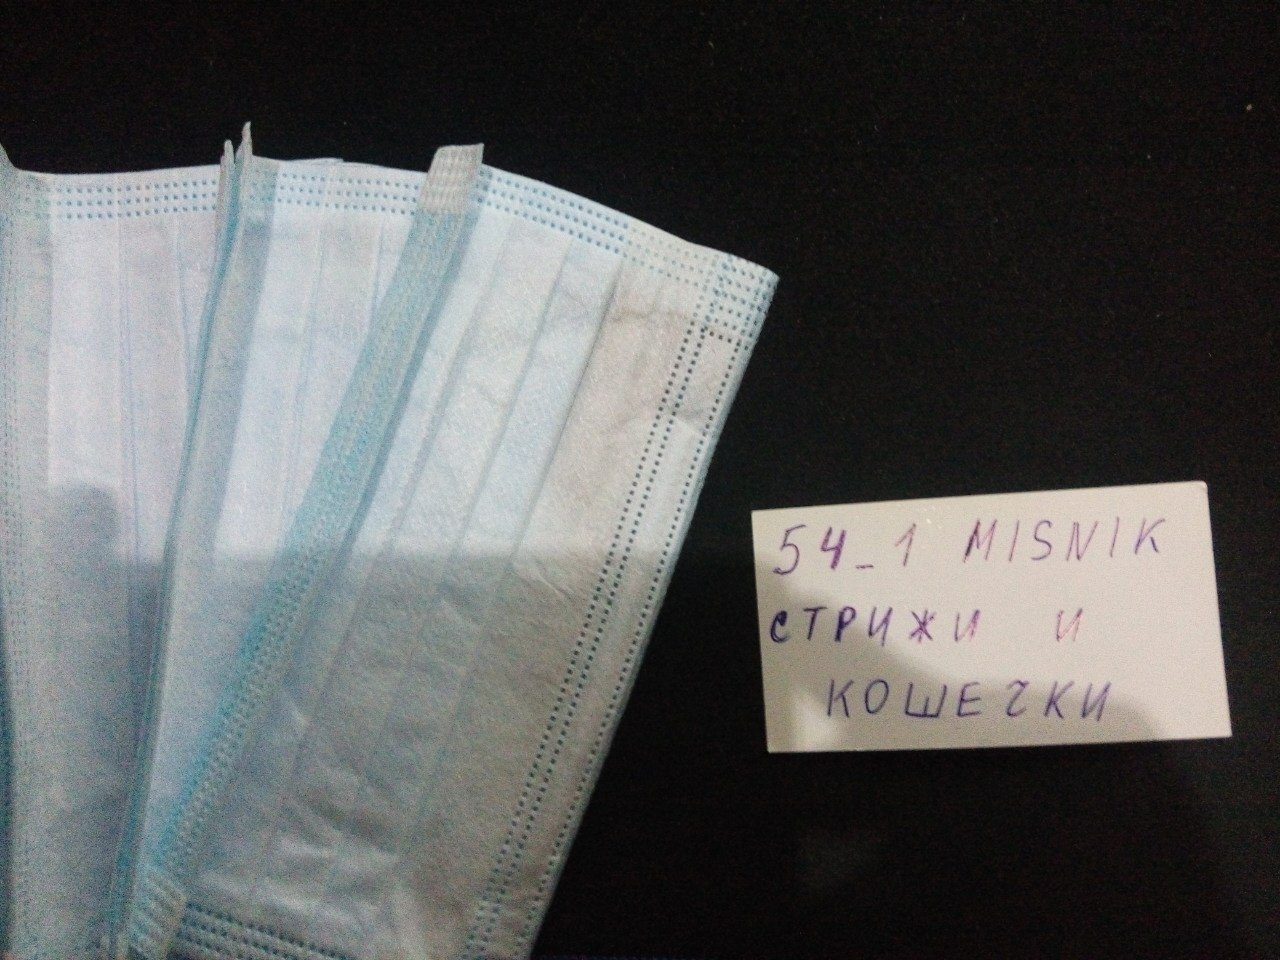 54_1 MISNIK
СТРИЖИ И
КОШЕЧКИ